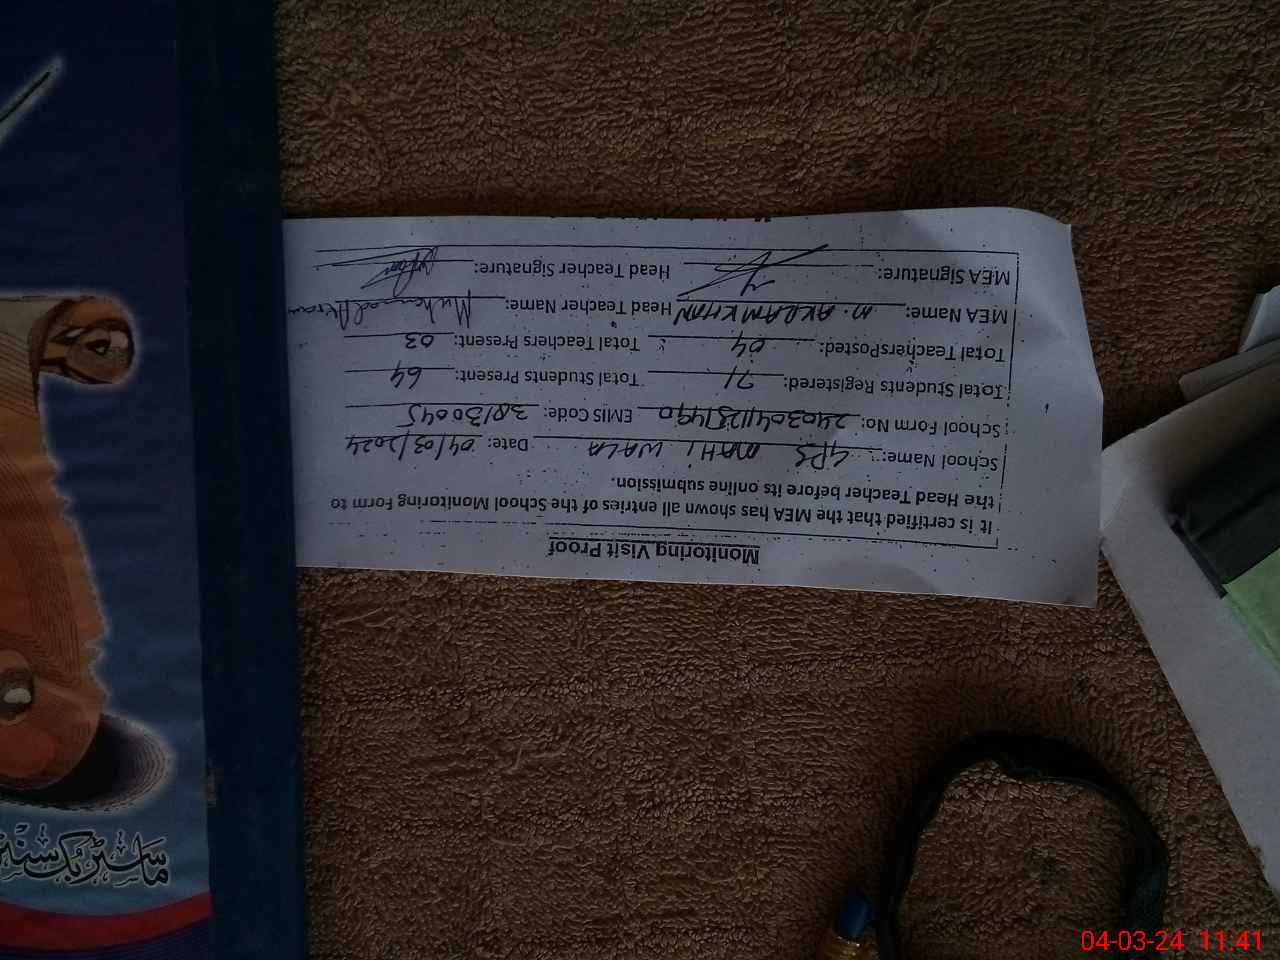 Monitoring Visit Proof
It is certified that the MEA has shown all entries of the School Monitoring Form to
the Head Teacher before its online submission.
School Name: GPS MAHI WALA Date: 04/03/2024
School Form No: EMIS Code: 38130045
Total Students Registered: 71 Total Students Present: 64
Total TeachersPosted: 04 Total Teachers Present: 03
MEA Name: M. AKRAM KHAN Head Teacher Name: Muhammad Akram
MEA Signature: Head Teacher Signature:
ماسٹر بک سنٹر
04-03-24 11:41